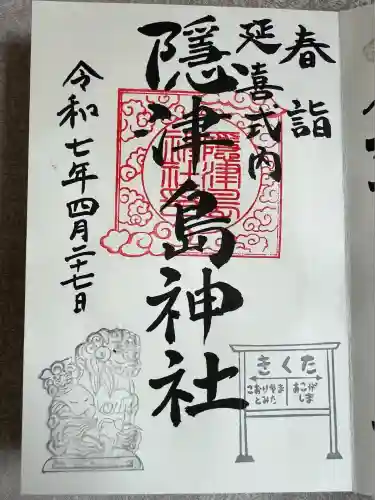 春詣
延喜式内
隠津島神社
隠津島
神社
令和七年四月二十七日
きくた
こおりやま
とみた
あこが
しま